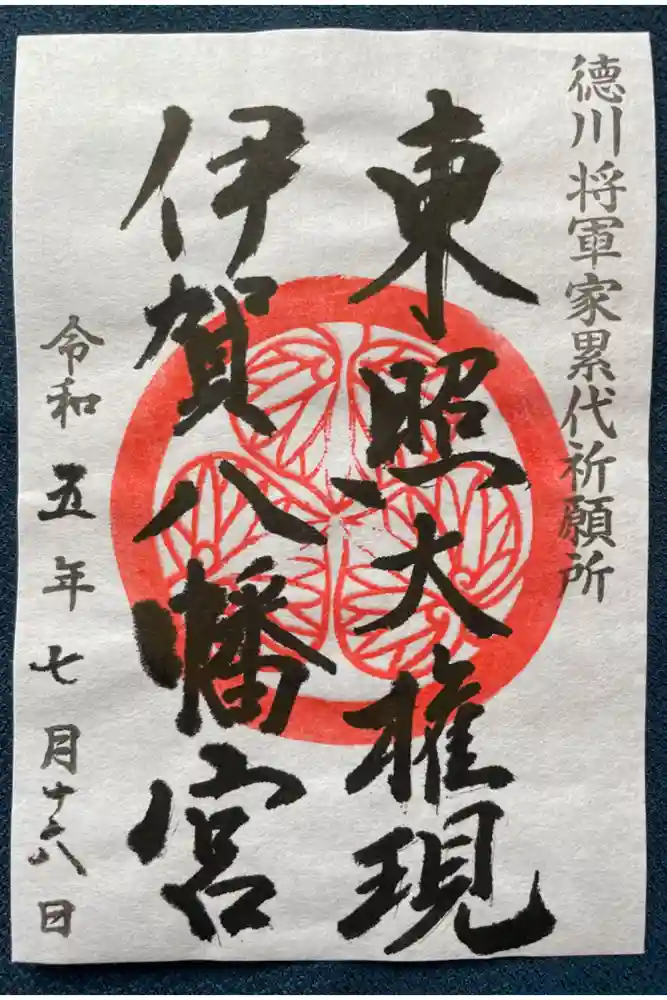 徳川将軍家累代祈願所
東照大権現
伊賀八幡宮
令和五年七月十六日